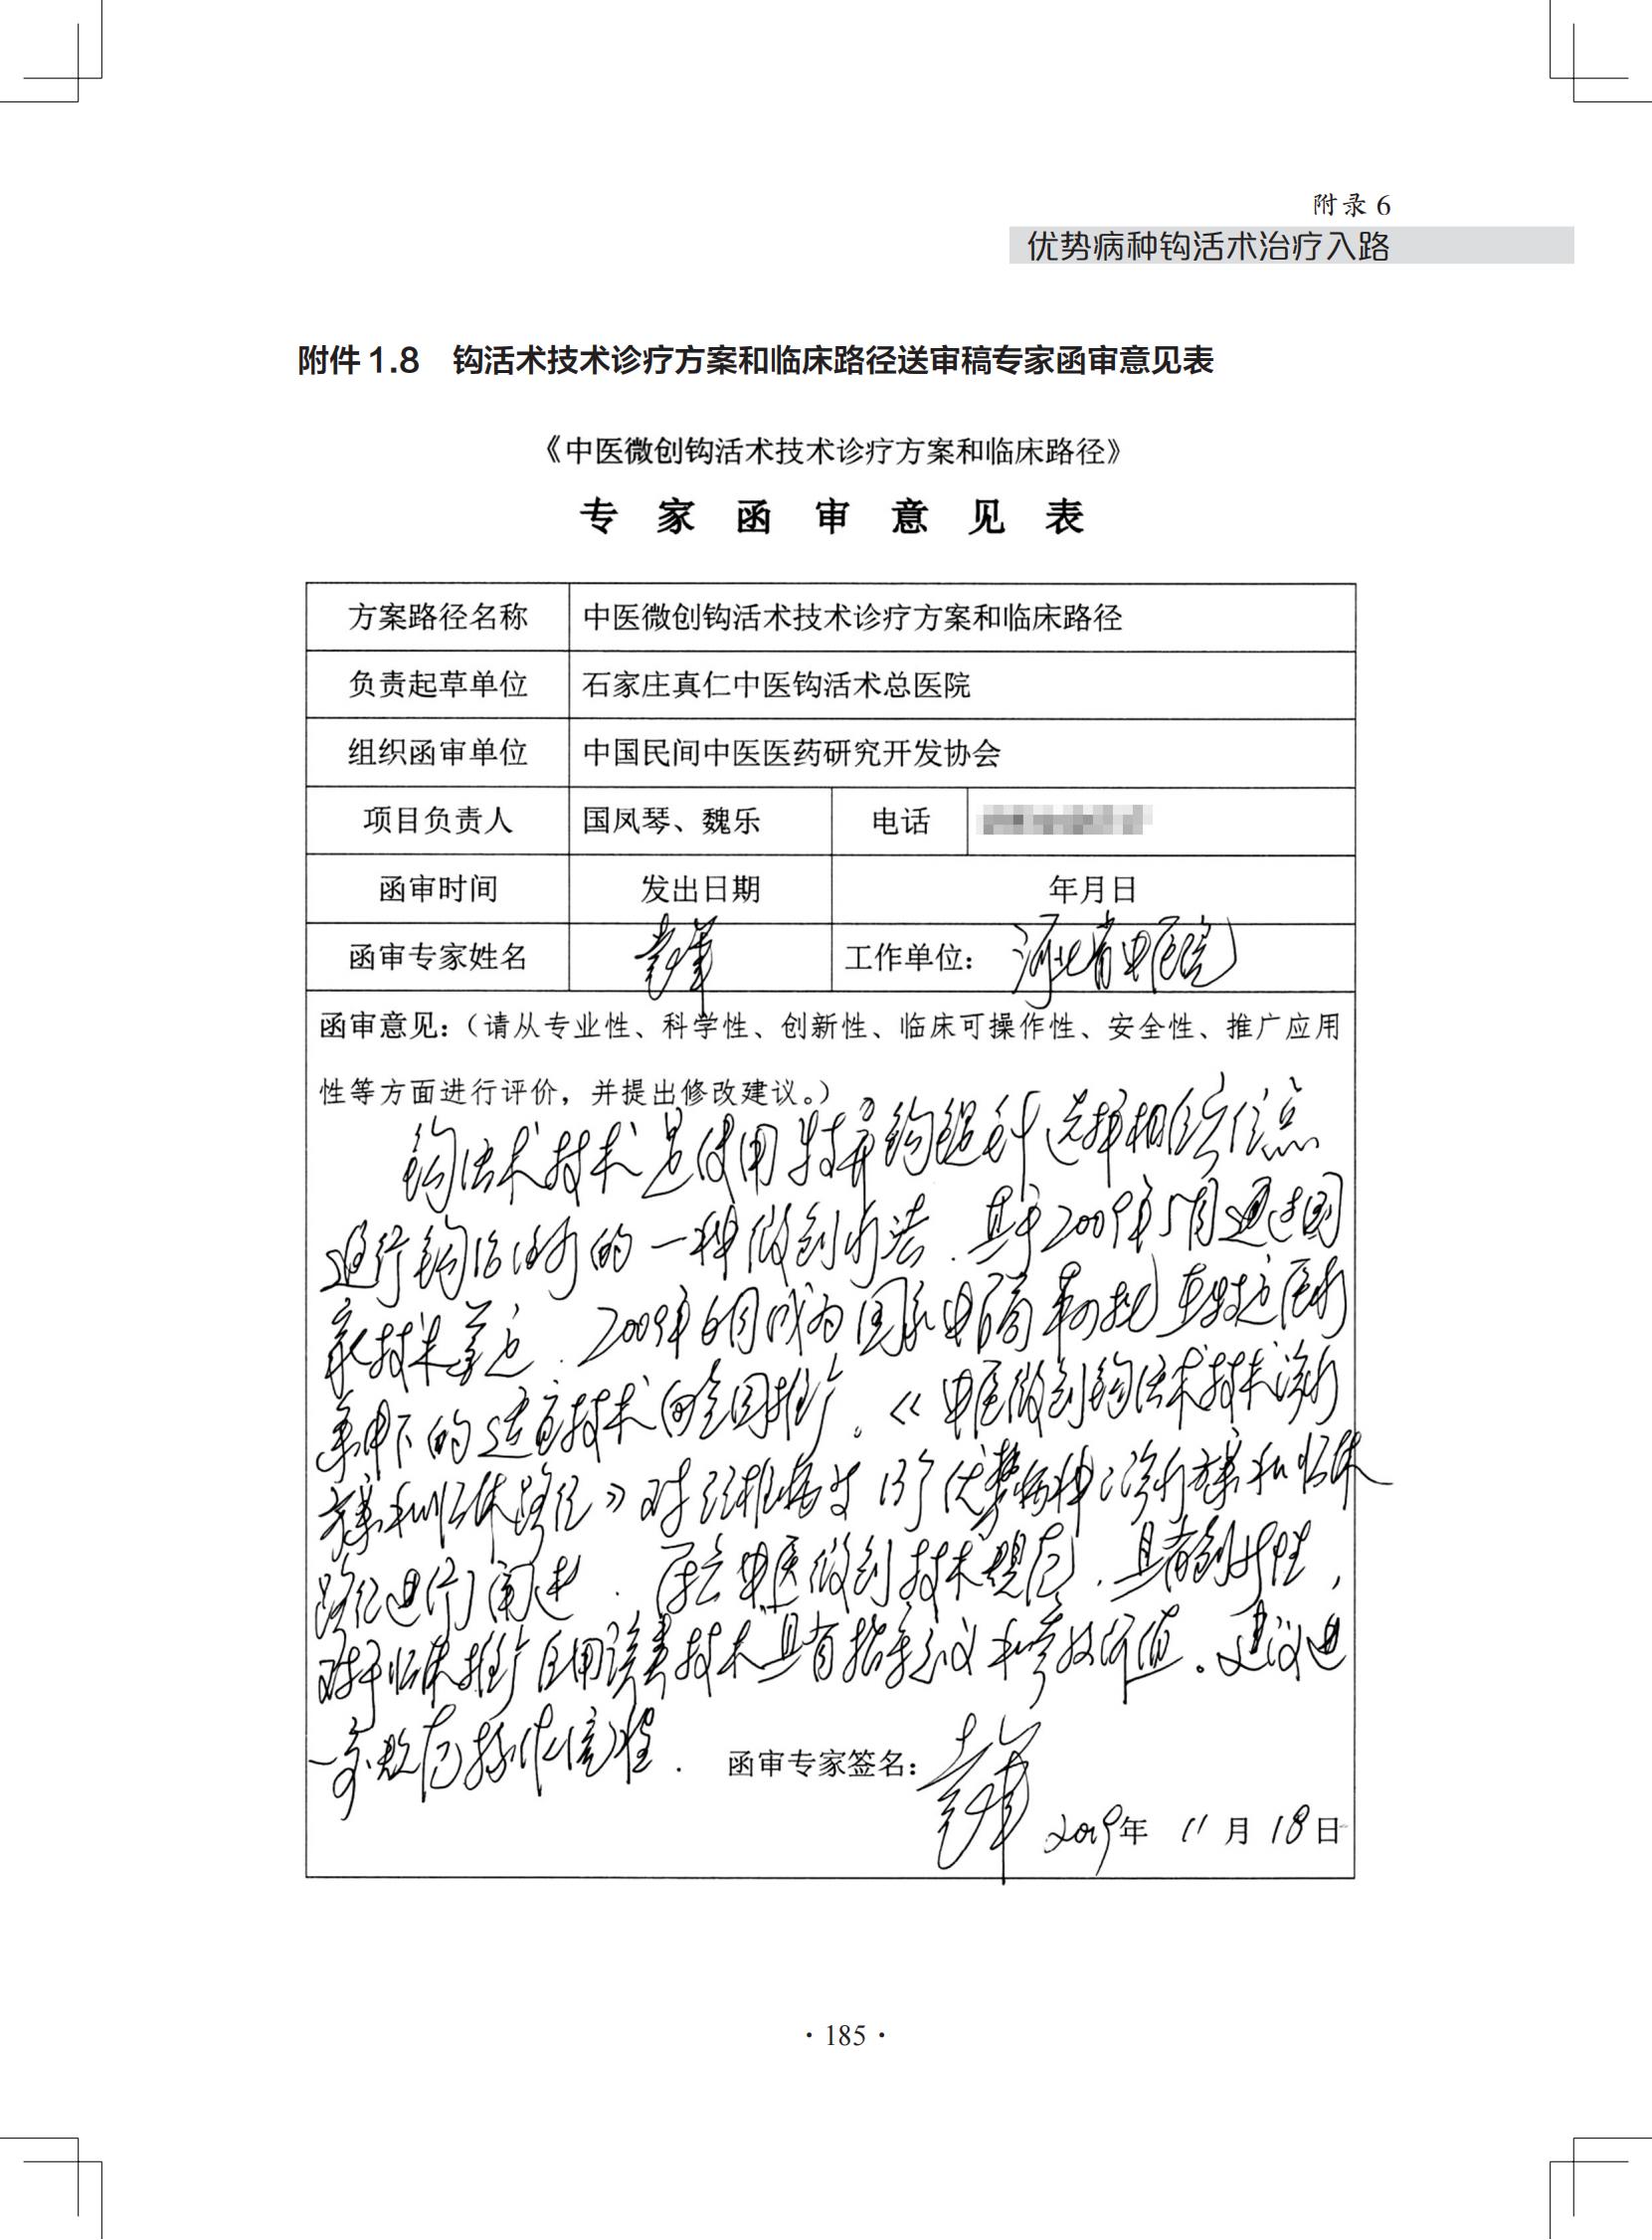 附录 6
优势病种钩活术治疗入路
附件 1.8 钩活术技术诊疗方案和临床路径送审稿专家函审意见表
《中医微创钩活术技术诊疗方案和临床路径》
专 家 函 审 意 见 表
方案路径名称 中医微创钩活术技术诊疗方案和临床路径
负责起草单位 石家庄真仁中医钩活术总医院
组织函审单位 中国民间中医医药研究开发协会
项目负责人 国凤琴、魏乐 电话
函审时间 发出日期 年月日
函审专家姓名 工作单位： 河北省中医院
函审意见：（请从专业性、科学性、创新性、临床可操作性、安全性、推广应用
性等方面进行评价，并提出修改建议。）
钩活术技术是使用特异钩鍉针选择相应位点
进行钩治治疗的一种微创疗法．其于2009年5月通过国
家技术鉴定．2009年6月成为国家中管局第
的适宜技术向全国推广。《中医微创钩活术技术诊疗
方案和临床路径》对 13个优势病种诊疗方案和临床
路径进行阐述． 符合中医微创技术规范．具有创新性，
对于临床推广应用该类技术具有指导意义和参考价值。建议进
一步规范操作流程． 函审专家签名：
2019年 11月 18日
· 185 ·